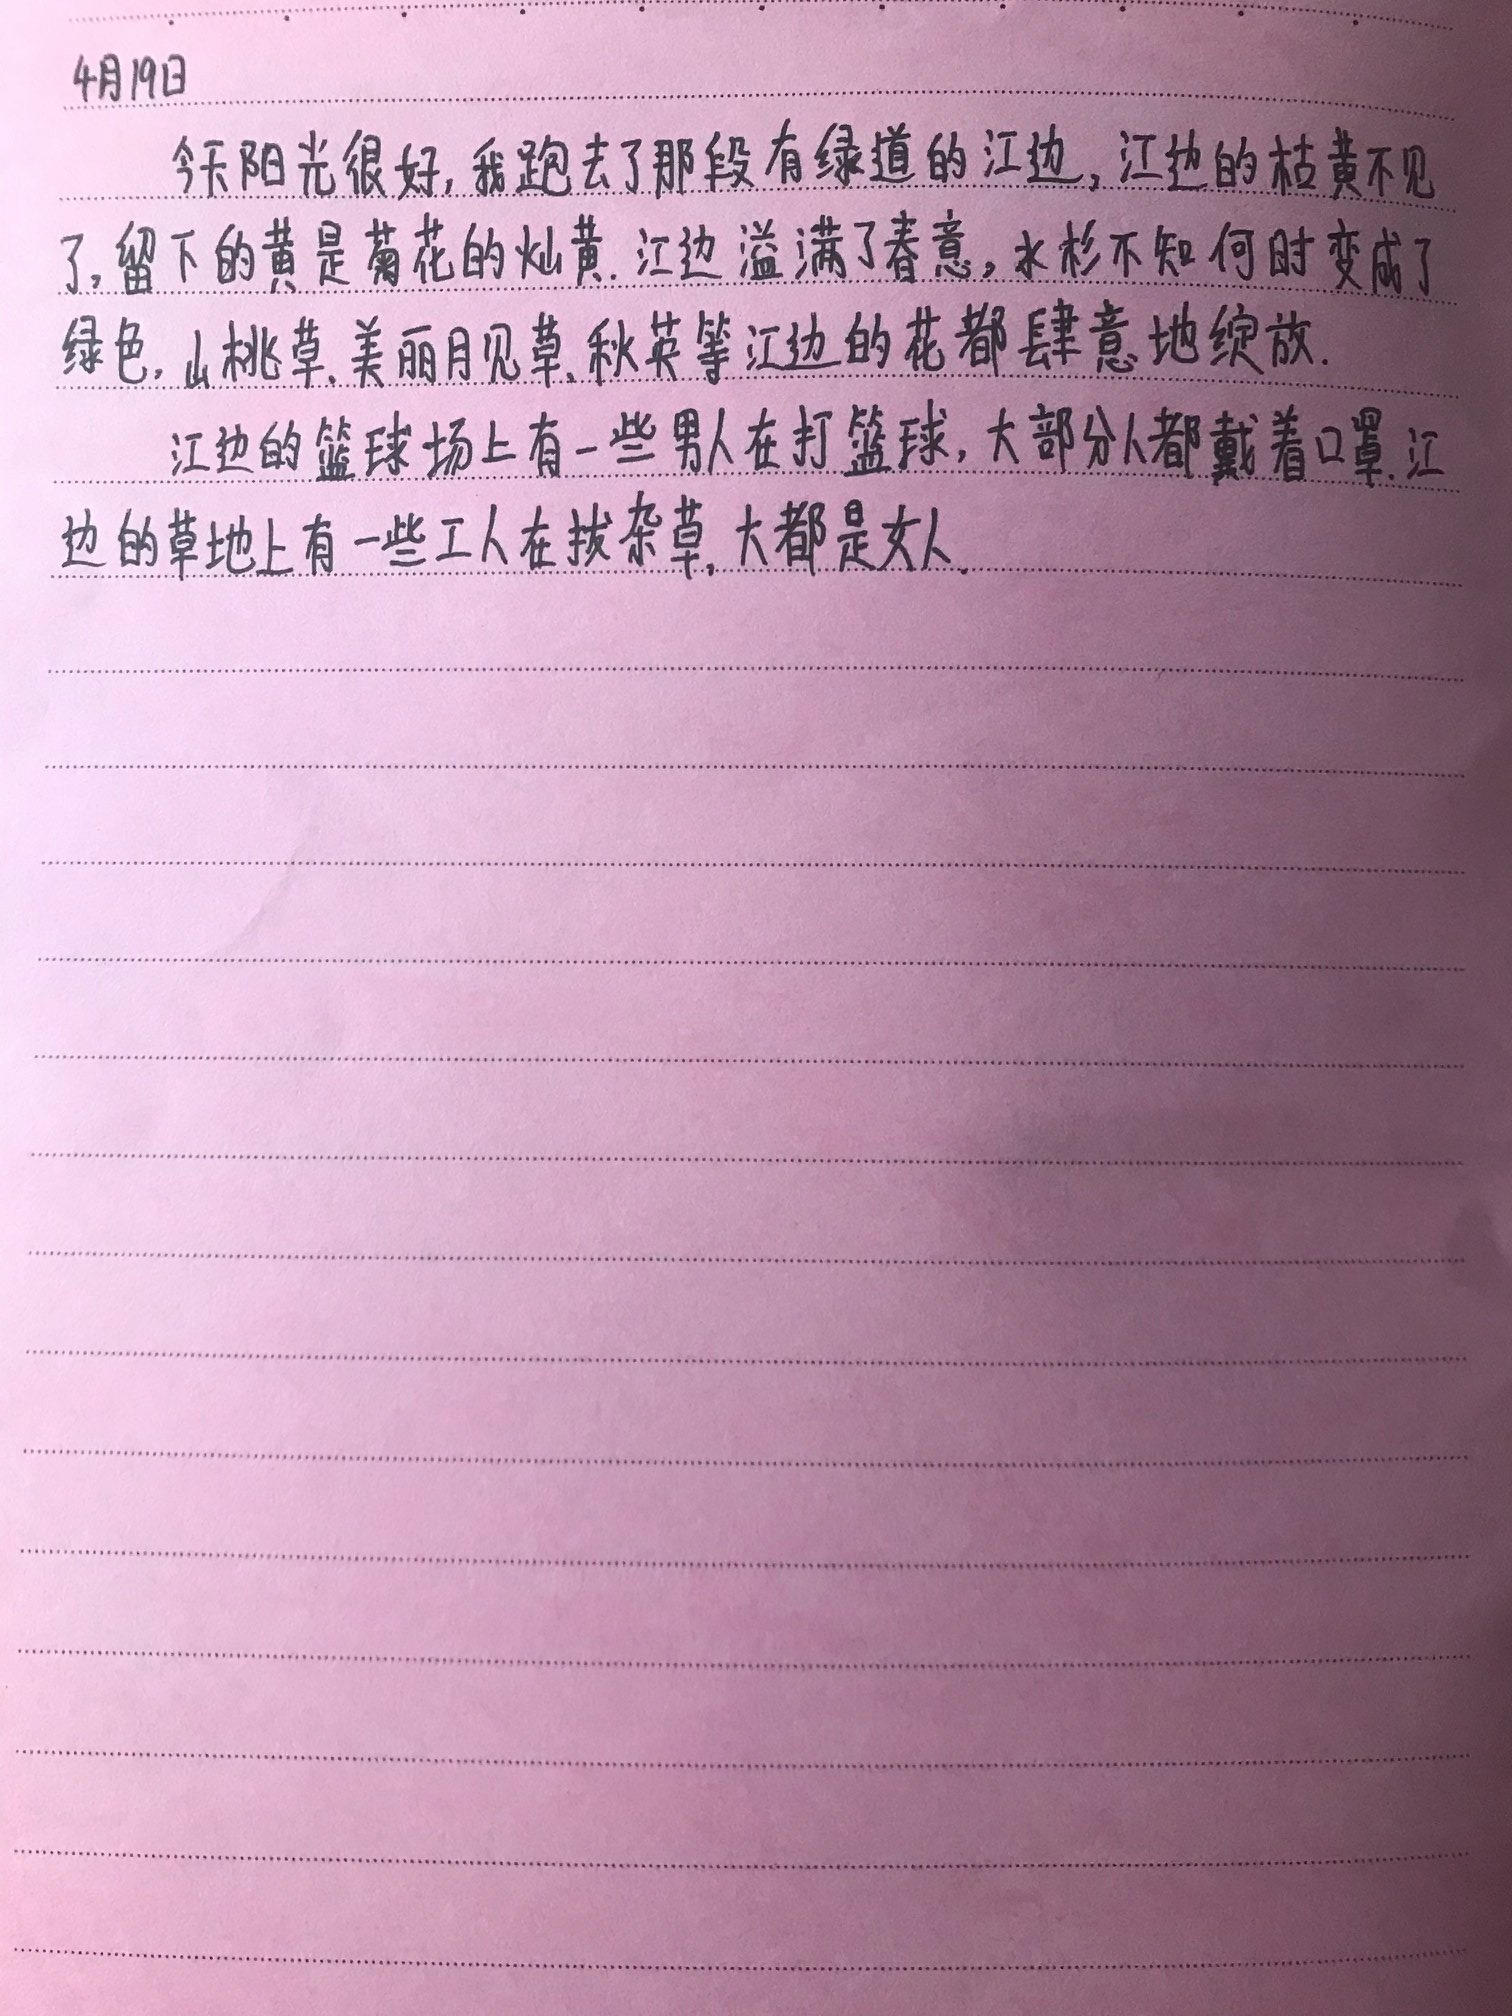 4月19日
今天阳光很好,我跑去了那段有绿道的江边,江边的枯黄不见
了,留下的黄是菊花的灿黄.江边溢满了春意,水杉不知何时变成了
绿色,山桃草、美丽月见草、秋英等江边的花都肆意地绽放.
江边的篮球场上有一些男人在打篮球,大部分人都戴着口罩.江
边的草地上有一些工人在拔杂草,大都是女人.